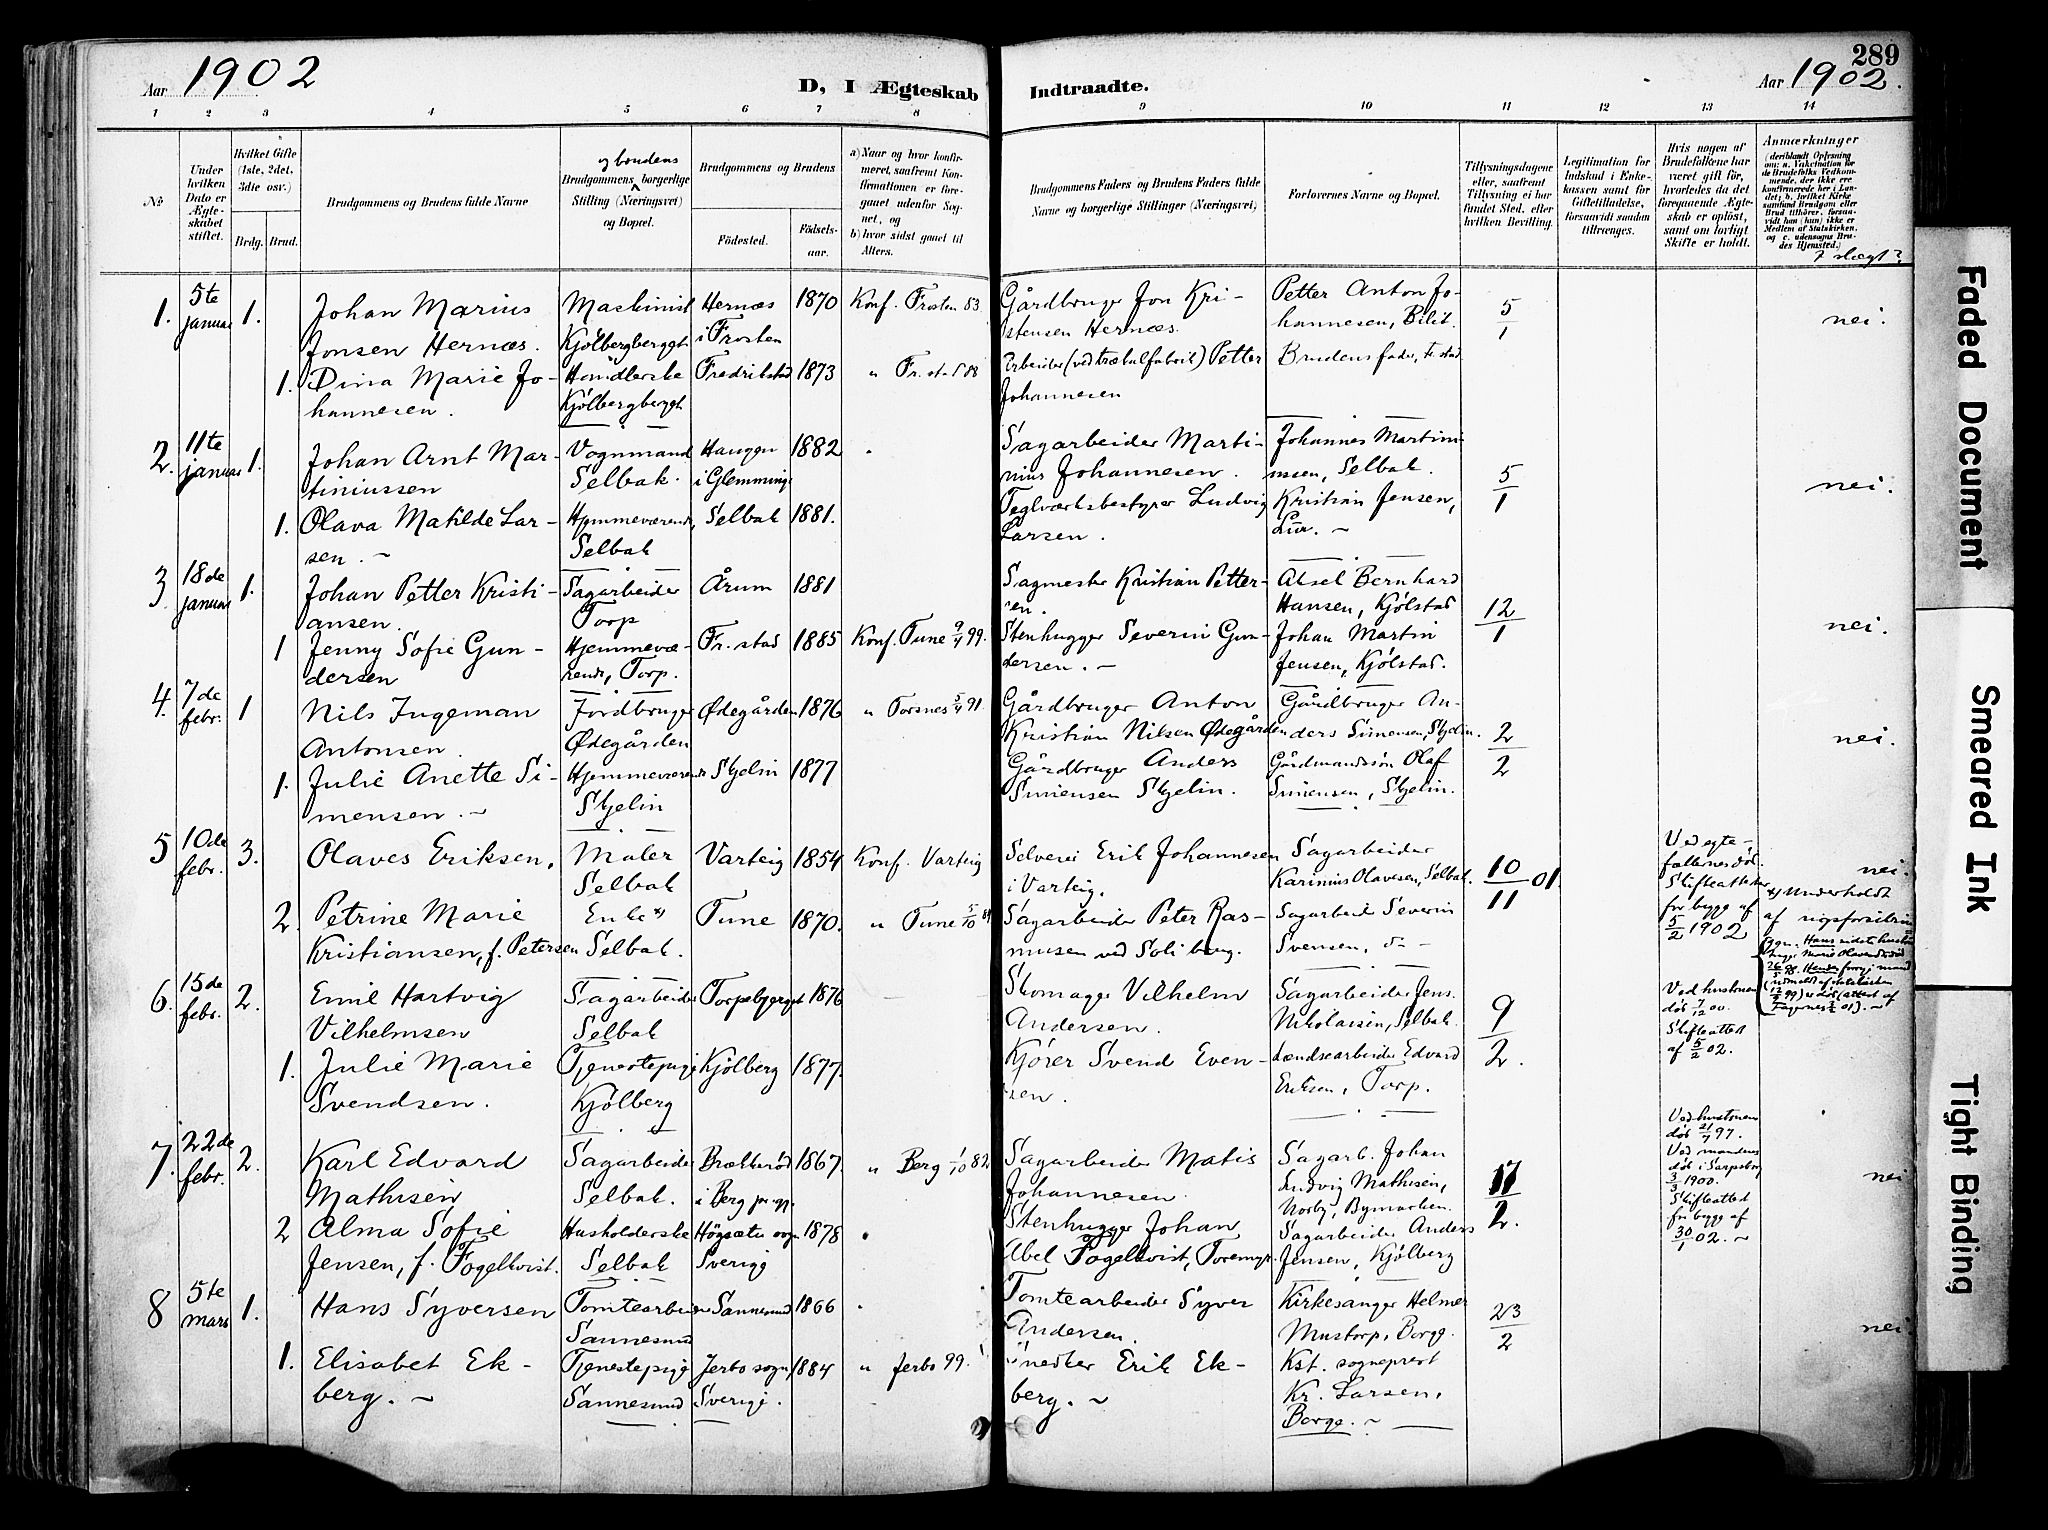 289
Aar 1902
D, I Ægteskab
Indtraadte.
Aar 1902.
1 2 3 4 5 6 7 8 9 10 11 12 13 14
No
Under hvilken Dato er Ægteskabet stiftet.
Hvilket Gifte (1ste, 2det, 3die osv.)
Brdg. Brud.
Brudgommens og Brudens fulde Navne
og brudens
Brudgommens borgerlige Stilling (Næringsvei) og Bopæl.
Brudgommens og Brudens
Födested.
Födsels-aar.
a) Naar og hvor konfirmeret, saafremt Konfirmationen er foregaaet udenfor Sognet, og
b) hvor sidst gaaet til Alters.
Brudgommens Faders og Brudens Faders fulde Navne og borgerlige Stillinger (Næringsvei)
Forlovernes Navne og Bopæl.
Tillysningsdagene eller, saafremt Tillysning ei har fundet Sted, efter hvilken Bevilling.
Legitimation for Indskud i Enkekassen samt for Giftetilladelse, forsaavidt saadan tiltrænges.
Hvis nogen af Brudefolkene har været gift för, hvorledes da det foregaaende Ægteskab er oplöst, samt om lovligt Skifte er holdt.
Anmærkninger
(deriblandt Oplysning om: a. Vakcination for de Brudefolks Vedkommende, der ikke ere konfirmerede her i Landet; b. hvilket Kirkesamfund Brudgom eller Brud tilhörer, forsaavidt han (hun) ikke er Medlem af Statskirken, og c. udensogns Brudes Hjemsted.)
slægt?
1. 5te januar 1. Johan Marius Jonsen Hernæs. Maskinist Kjölbergbergget Hernæs i Frosten 1870 Konf. Frosten 83. Gårdbruger Jon Kristensen Hernæs. Petter Anton Johannesen, Bilit. 5/1 nei.
1. Dina Marie Johannesen. Handlerske Kjölbergbergget Fredrikstad 1873 " Fr.stad 88 Arbeider (ved træhulfabrik) Petter Johannesen Brudens fader, Fr.stad
2. 11te januar 1. Johan Arnt Martiniussen Vognmand Selbak. Haugen i Glemminge 1882 Sagarbeider Martinius Johannesen. Johannes Martiniussen, Selbak. 5/1 nei.
1. Olava Matilde Larsen. Hjemmeværende, Selbak Selbak 1881. Teglværksbestyrer Ludvig Larsen. Kristian Jensen, Lur.
3. 18de januar 1. Johan Petter Kristiansen. Sagarbeider Torp Årum 1881 Sagmester Kristian Pettersen. Aksel Bernhard Hansen, Kjölstad 12/1 nei.
1 Jenny Sofie Gundersen Hjemmeværende, Torp. Fr.stad 1885 Konf. Tune 9/4 99. Stenhugger Severin Gundersen. Johan Martin Jensen, Kjölstad.
4. 7de febr. 1 Nils Ingeman Antonsen. Jordbruger Ødegården Ødegården 1876 " Torsnes 5/4 91 Gårdbruger Anton Kristian Nilsen Ødegården Gårdbruger Anders Simensen, Skjelin. 2/2 nei.
1. Julie Anette Simensen. Hjemmeværende Skjelin Skjelin 1877 Gårdbruger Anders Simensen Skjelin. Gårdmandssön Olaf Simensen, Skjelin.
5 10de febr. 3. Olaves Eriksen, Maler Selbak Varteig 1854 Konf. Varteig Selveier Erik Johannesen i Varteig. Sagarbeider Karinius Olavesen, Selbak. 10/11 01. nei.
Ved egtefællernes död. Skifteattester for begge af 5/2 1902
2. Petrine Marie Kristiansen, f. Petersen Enke *) Selbak. Tune 1870. " Tune 5/10 84 Sagarbeider Peter Rasmusen ved Soli brug. Sagarbeid Severin Svensen,
*) Underholdt af
6. 15de febr. 2. Emil Hartvig Vilhelmsen Sagarbeider Selbak Torpebjerget 1876 Skomager Vilhelm Andersen. Sagarbeider Jens Nikolaisen, Selbak. 9/2.
Ved hustruens död 7/12 00. Skifteattest af 5/2 02.
1. Julie Marie Svendsen. Tjenestepige Kjölberg Kjölberg 1877. Kjörer Svend Evensen. Lændsearbeider Edvard Eriksen, Torp.
7. 22de febr. 2. Karl Edvard Mathisen Sagarbeider Selbak. Brækkeröd i Berg 1867. " Berg 1/10 82 Sagarbeider Matis Johannesen. Sagarb. Johan Ludvig Mathisen, Norby, Bymarken. 17/2. nei
Ved hustruens död 21/7 97. Ved mandens död i Sarpsborg 3/3 1900. Skifteattest for begge af 30/1 02.
2 Alma Sofie Jensen, f. Fogelkvist. Husholderske Selbak Högsäter sogn Sverige 1878 Stenhugger Johan Abel Fogelkvist, Toremyr. Sagarbeider Anders Jensen, Kjölberg
8 5te mars 1. Hans Syversen Tomtearbeider Sannesund Sannesund 1866 Tomtearbeider Syver Andersen. Kirkesanger Helmer Mustorp, Borge. 23/2 nei.
1. Elisabet Ekberg. Tjenestepige Sannesund Jerbo sogn, Sverige. 1884 " Jerbo 99. Snedker Erik Ekberg. Kst. sogneprest Kr. Larsen, Borge.
Faded Document
Smeared Ink
Tight Binding